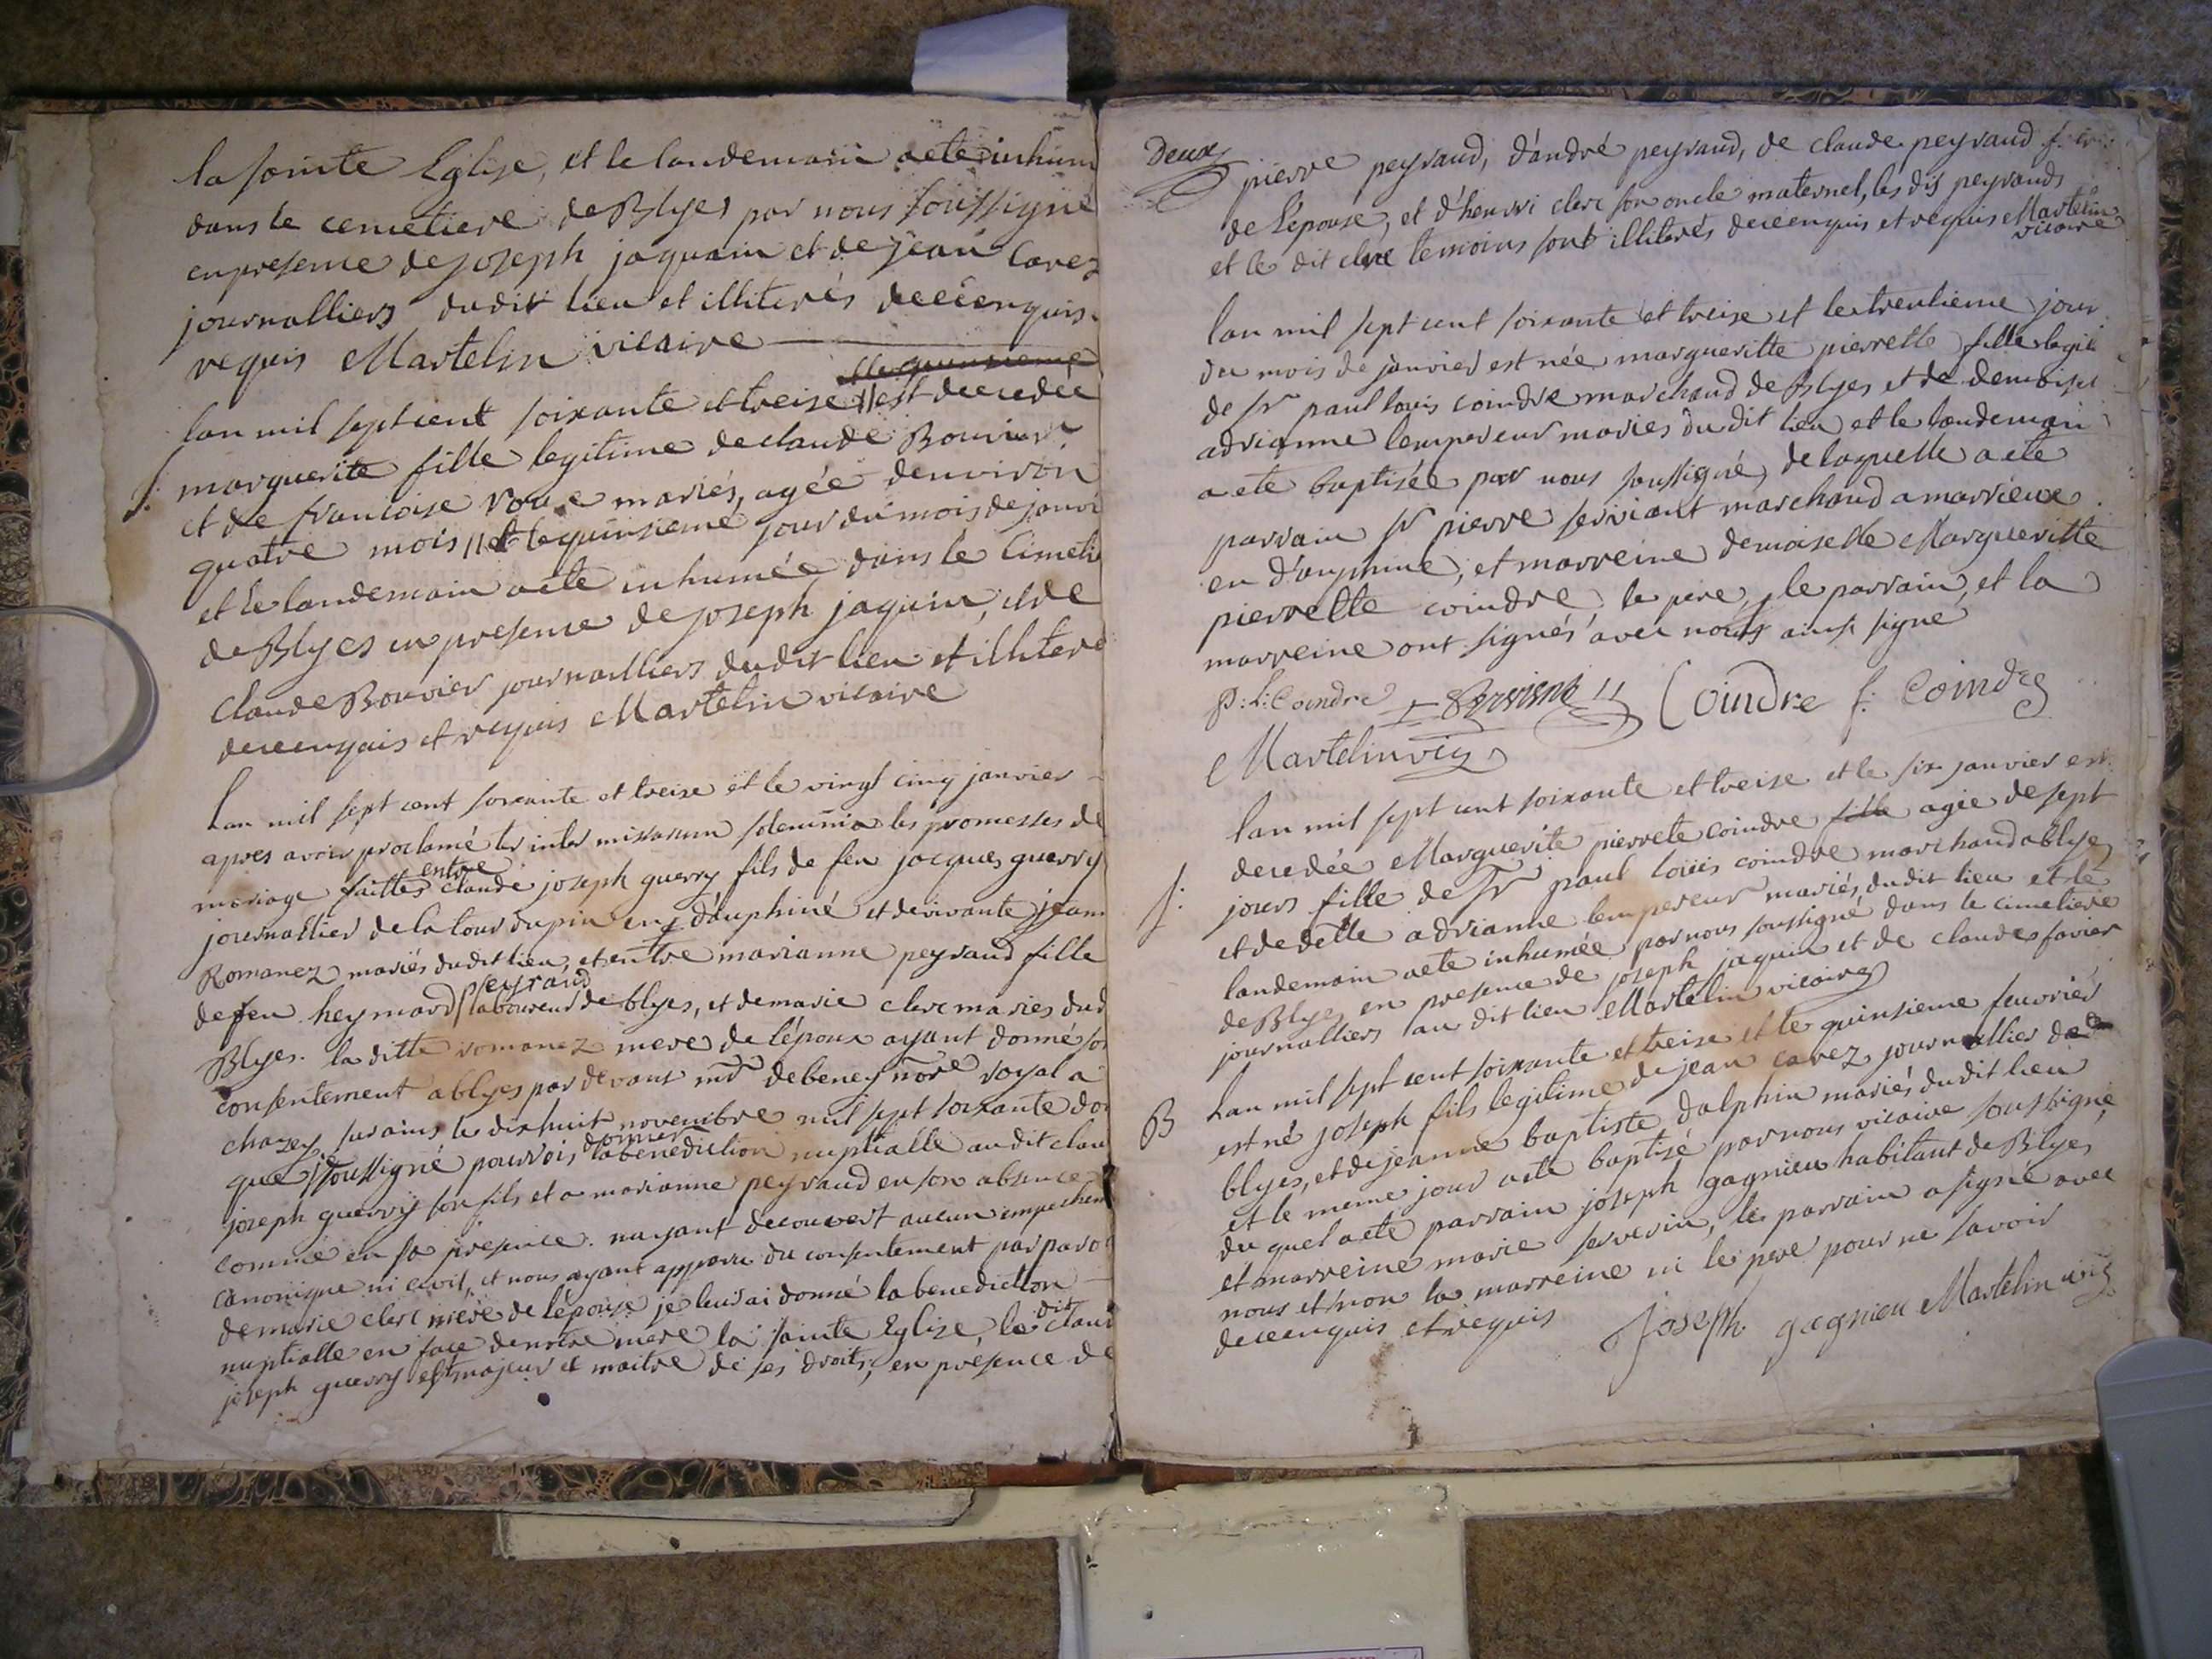 la sainte Eglise, et le landemain a eté inhum
dans le cemetiere de Blyes par nous soussigné
en presence de joseph jaquain et de jean Carez
journalliers dudit lieu et illiterés de ce enquis.
requis Martelin vicaire
lan mil sept cent soixante et treise // est decedée
J. marguerite fille legitime de claude Bouvier
et de francoise mariés, agée denviron
quatre mois // et le quinsieme jour du mois de janvi
et le landemain a eté inhumée dans le Cimeti
de Blyes en presence de joseph jaquin, et de
Claude Bouvier journalliers dudit lieu et illiteré
de ce enquis et requis Martelin vicaire
Lan mil sept cent soixante et treise et le vingt cinq janvier
apres avoir proclamé ter inter missarum solemnia les promesses de
mariage faittes entre claude joseph guerry fils de feu jacques guerry
journallier de la tour du pin en dauphiné et de vivante jean
Romanez mariés dudit lieu, et entre marianne peyraud fille
de feu heymard peyraud laboureur de blyes, et de marie clerc mariés dud
Blyes. la ditte romanez mere de l'époux ayant donné so
consentement a blyes par devant me debeney nore royal a
chazey sur ains le dix huit novembre mil sept soixante do
que soussigné pouvois donner la benediction nuptialle au dit clau
joseph guerry son fils et a marianne peyraud en son absence
comme en sa presence. nayant decouvert aucun empechem
canonique ni civil, et nous ayant apparu du consentement par paro
de marie clerc mere de l'épouse je leur ai donné la benediction
nuptialle en face de notre mere la sainte Eglise, le dit claud
joseph guerry est majeur et maitre de ses droits, en présence de
Deux
pierre peyraud, d'andré peyraud, de claude peyraud
de l'épouse, et d'henrri clerc son oncle maternel, les dis peyrauds
et le dit clerc temoins sont illiterés de ce enquis et requis Martelin
vicaire
lan mil sept cent soixante et treise et le trentieme jour
du mois de janvier est née margueritte pierrette fille legit
de Sr paul louis coindre marchand de Blyes et de demoisel
adrianne lempereur mariés du dit lieu et le landemain
a eté baptisée par nous soussigné, de laquelle a eté
parrain Sr pierre servient marchand a
en d'auphiné, et marreine demoiselle Margueritte
pierrette coindre, le pere, le parrain, et la
marreine ont signés avec nous ainsi signé
P: L: Coindre Servient Coindre f: Coindre
Martelin vic
lan mil sept cent soixante et treise et le six janvier est
J. decedée Marguerite pierrete coindre fille agée de sept
jours fille de Sr paul louis coindre marchand a blyes
et de delle adrianne lempereur mariés dudit lieu et le
landemain a eté inhumée par nous soussigné dans le cimetiere
de Blyes en presence de joseph jaquin et de claude favier
journalliers au dit lieu Martelin vicaire
B Lan mil sept cent soixante et treise et le quinsieme feuvrier
est né joseph fils legitime de jean carez journallier de
blyes, et de jeanne baptiste dalphin mariés dudit lieu
et le meme jour a eté baptisé par nous vicaire soussigné,
du quel a eté parrain joseph gagnieu habitant de Blyes
et marreine marie serverin, le parrain a signé avec
nous et non la marreine ni le pere pour ne savoir
de ce enquis et requis Joseph gagnieu Martelin vic